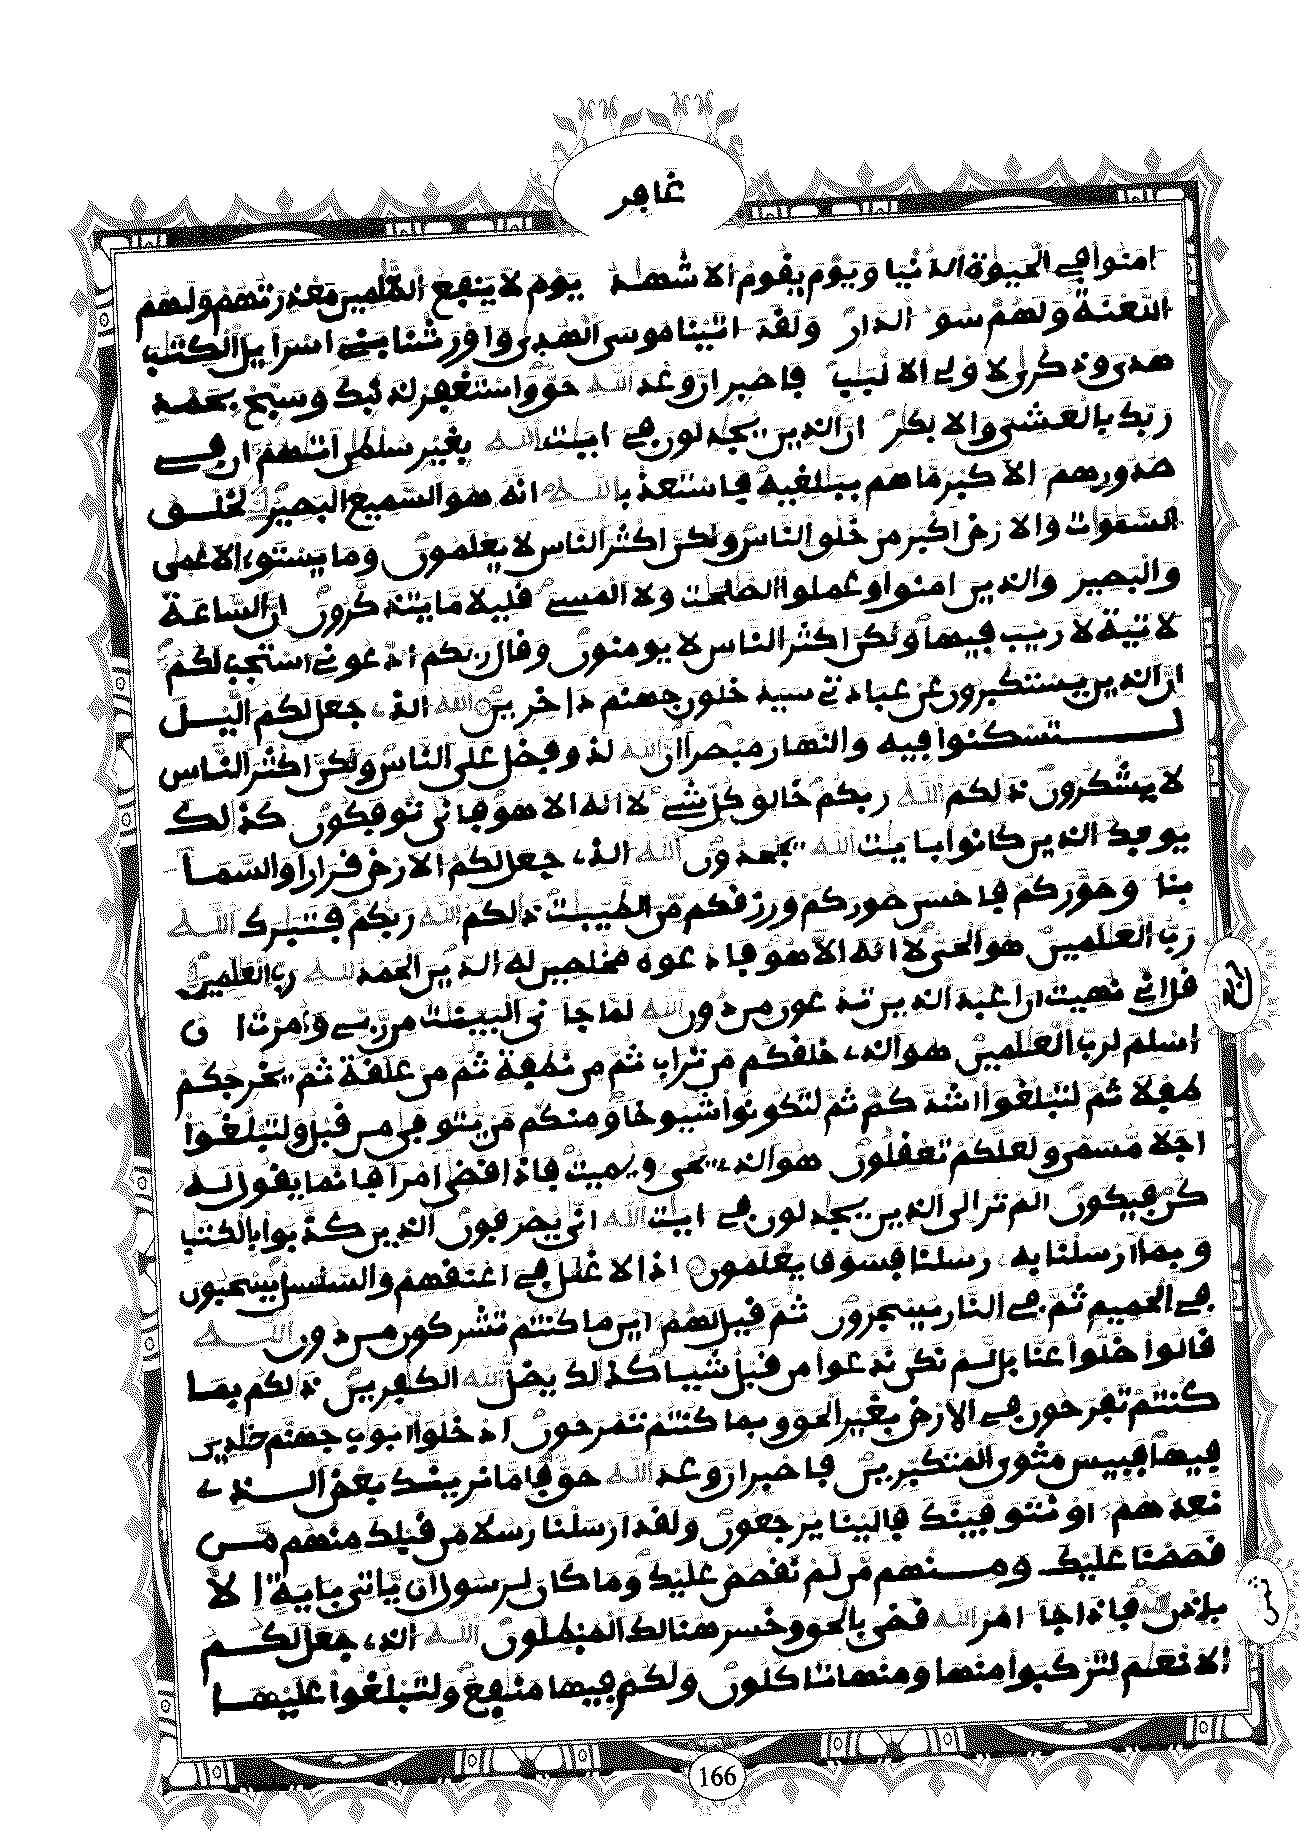 غافر
امنوا في الحيوة الدنيا ويوم يقوم الاشهد يوم لا ينفع الظلمين معذرتهم ولهم
اللعنة ولهم سوء الدار ولقد اتينا موسى الهدى واورثنا بني اسراءيل الكتب
هدى وذكرى لاولي الالبب فاصبر ان وعد الله حق واستغفر لذنبك وسبح بحمد
ربك بالعشي والابكر ان الذين يجدلون في ايت الله بغير سلطن اتيهم ان في
صدورهم الا كبر ما هم ببلغيه فاستعذ بالله انه هو السميع البصير لخلق
السموات والارض اكبر من خلق الناس ولكن اكثر الناس لا يعلمون وما يستوي الاعمى
والبصير والذين امنوا وعملوا الصلحت ولا المسيء قليلا ما يتذكرون ان الساعة
لاتية لا ريب فيها ولكن اكثر الناس لا يومنون وقال ربكم ادعوني استجب لكم
ان الذين يستكبرون عن عبادتي سيدخلون جهنم داخرين الله الذي جعل لكم اليل
لتسكنوا فيه والنهار مبصرا ان الله لذو فضل على الناس ولكن اكثر الناس
لا يشكرون ذلكم الله ربكم خالق كل شيء لا اله الا هو فانى توفكون كذلك
يوفك الذين كانوا بايت الله يجحدون الله الذي جعل لكم الارض قرارا والسماء
بناء وصوركم فاحسن صوركم ورزقكم من الطيبت ذلكم الله ربكم فتبرك الله
رب العلمين هو الحي لا اله الا هو فادعوه مخلصين له الدين الحمد لله رب العلمين
قل اني نهيت ان اعبد الذين تدعون من دون الله لما جاءني البينت من ربي وامرت ان
اسلم لرب العلمين هو الذي خلقكم من تراب ثم من نطفة ثم من علقة ثم يخرجكم
طفلا ثم لتبلغوا اشدكم ثم لتكونوا شيوخا ومنكم من يتوفى من قبل ولتبلغوا
اجلا مسمى ولعلكم تعقلون هو الذي يحي ويميت فاذا قضى امرا فانما يقول له
كن فيكون الم تر الى الذين يجدلون في ايت الله انى يصرفون الذين كذبوا بالكتب
وبما ارسلنا به رسلنا فسوف يعلمون اذ الاغلل في اعنقهم والسلسل يسحبون
في الحميم ثم في النار يسجرون ثم قيل لهم اين ما كنتم تشركون من دون الله
قالوا ضلوا عنا بل لم نكن ندعوا من قبل شيا كذلك يضل الله الكفرين ذلكم بما
كنتم تفرحون في الارض بغير الحق وبما كنتم تمرحون ادخلوا ابوب جهنم خلدين
فيها فبيس مثوى المتكبرين فاصبر ان وعد الله حق فاما نرينك بعض الذي
نعدهم او نتوفينك فالينا يرجعون ولقد ارسلنا رسلا من قبلك منهم من
قصصنا عليك ومنهم من لم نقصص عليك وما كان لرسول ان ياتي باية الا
باذن الله فاذا جاء امر الله قضي بالحق وخسر هنالك المبطلون الله الذي جعل لكم
الانعم لتركبوا منها ومنها تاكلون ولكم فيها منفع ولتبلغوا عليها
ثمن
166